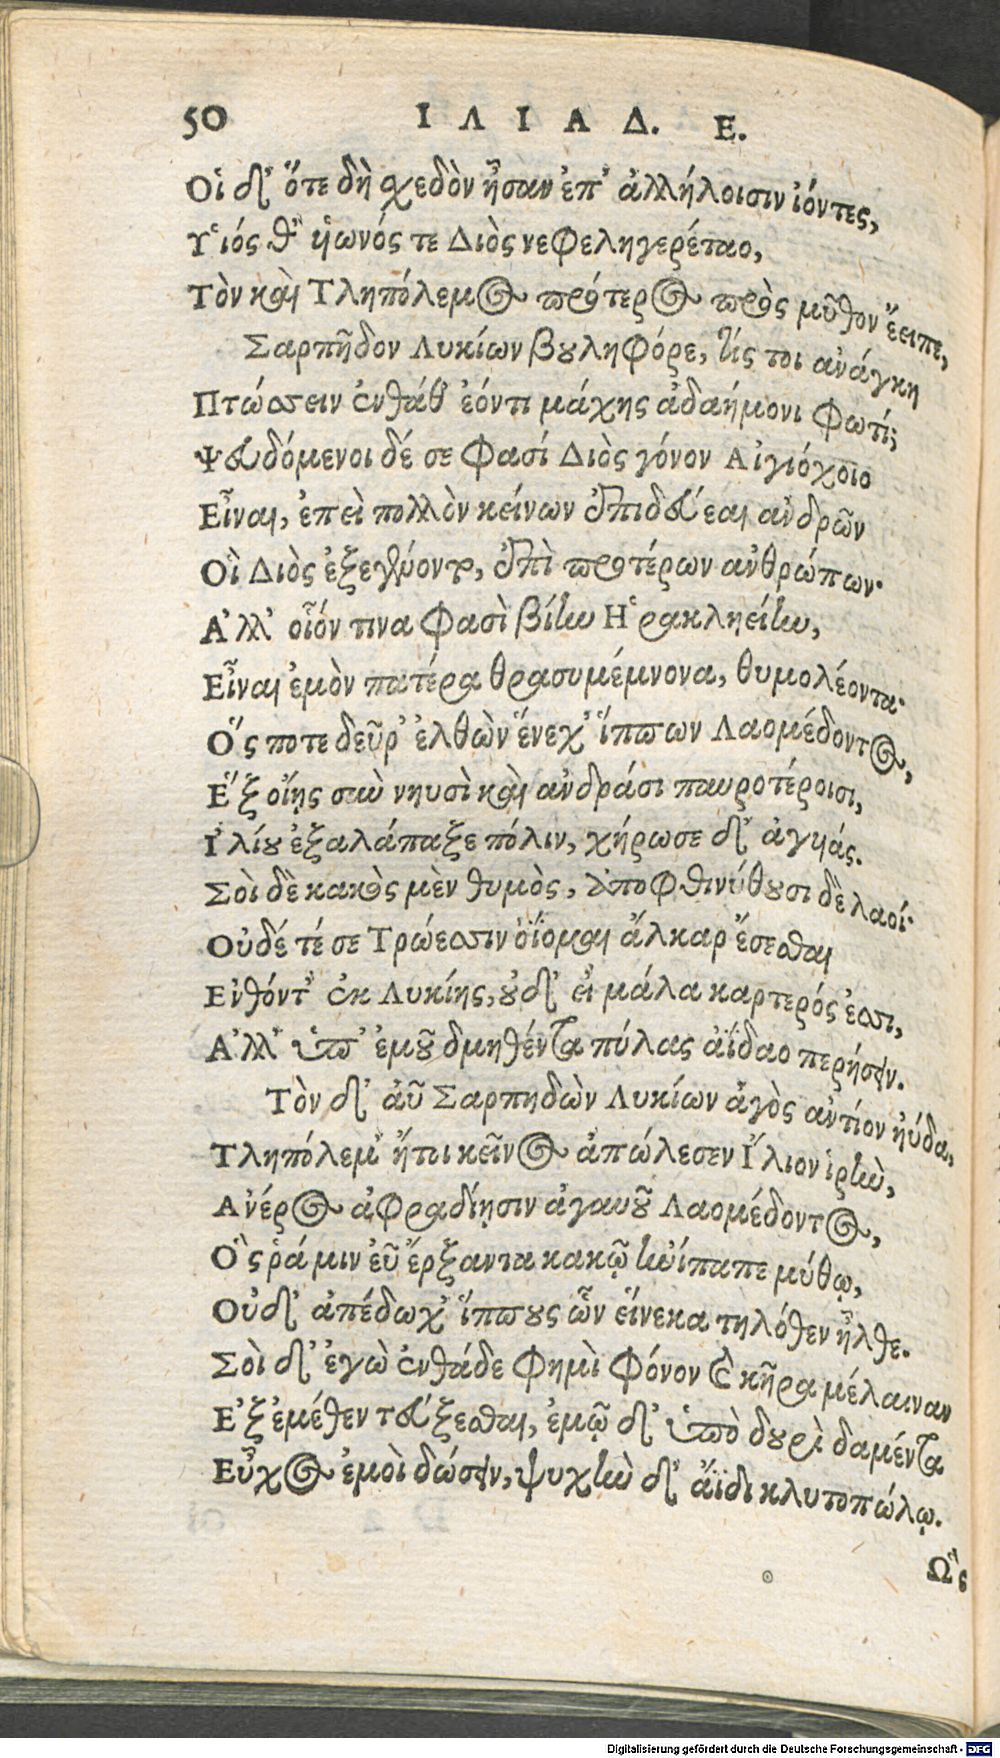 50 ΙΛΙΑΔ. Ε.
Οἱ δ' ὅτε δὴ σχεδὸν ἦσαν ἐπ' ἀλλήλοισιν ἰόντες,
Υἱός θ' υἱωνός τε Διὸς νεφεληγερέταο,
Τὸν καὶ Τληπόλεμος πρότερος πρὸς μῦθον ἔειπε,
Σαρπῆδον Λυκίων βουληφόρε, τίς τοι ἀνάγκη
Πτώσσειν ἐνθάδ' ἐόντι μάχης ἀδαήμονι φωτί;
Ψευδόμενοι δέ σε φασί Διὸς γόνον Αἰγιόχοιο
Εἶναι, ἐπεὶ πολλὸν κείνων ἐπιδεύεαι ἀνδρῶν
Οἳ Διὸς ἐξεγένοντο, ἐπὶ προτέρων ἀνθρώπων·
Ἀλλ' οἷόν τινα φασὶ βίην Ἡρακληείην,
Εἶναι ἐμὸν πατέρα θρασυμέμνονα, θυμολέοντα·
Ὅς ποτε δεῦρ' ἐλθὼν ἕνεχ' ἵππων Λαομέδοντος,
Ἓξ οἴῃς σὺν νηυσὶ καὶ ἀνδράσι παυροτέροισι,
Ἰλίου ἐξαλάπαξε πόλιν, χήρωσε δ' ἀγυιάς.
Σοὶ δὲ κακὸς μὲν θυμὸς, ἀποφθινύθουσι δὲ λαοί·
Οὐδέ τέ σε Τρώεσσιν ὀΐομαι ἄλκαρ ἔσεσθαι
Ἐνθόντ' ἐκ Λυκίης, οὐδ' εἰ μάλα καρτερός ἐσσι,
Ἀλλ' ὑπ' ἐμοῦ δμηθέντα πύλας ἀΐδαο περήσειν.
Τὸν δ' αὖ Σαρπηδὼν Λυκίων ἀγὸς ἀντίον ηὔδα,
Τληπόλεμ' ἤτοι κεῖνος ἀπώλεσεν Ἴλιον ἱρὴν,
Ἀνέρος ἀφραδίῃσιν ἀγαυοῦ Λαομέδοντος,
Ὅς ῥά μιν εὖ ἔρξαντα κακῷ ἠνίπαπε μύθῳ,
Οὐδ' ἀπέδωχ' ἵππους ὧν εἵνεκα τηλόθεν ἦλθε.
Σοὶ δ' ἐγὼ ἐνθάδε φημὶ φόνον καὶ κῆρα μέλαιναν
Ἐξ ἐμέθεν τεύξεσθαι, ἐμῷ δ' ὑπὸ δουρὶ δαμέντα
Εὖχος ἐμοὶ δώσειν, ψυχὴν δ' ἄϊδι κλυτοπώλῳ.
Ὣς
Digitalisierung gefördert durch die Deutsche Forschungsgemeinschaft - DFG